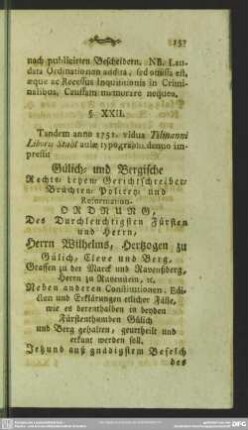 157
nach publicirten Bescheidern. NB. Lau-
data Ordinationum additis, sed omissa est,
æque ac Recessus Inquisitionis in Crimi-
nalibus. Caussam memorare nequeo.
§ XXII.
Tandem anno 1751. vidua Tilmanni
aulæ typographi denuo im-
pressit
Gülich- und Bergische
Rechts- Lehen- Gerichtschreiber-
Brüchten- Policey- und
Reformation-
ORDNUNG,
Des Durchleuchtigsten Fürsten
und Herrn,
Herrn Wilhelms, Hertzogen zu
Gülich, Cleve und Berg,
Graffen zu der Marck und Ravensberg,
Herrn zu Ravenstein, ꝛc.
Neben anderen Constitutionen, Edi-
cten und Erklärungen etlicher Fälle,
wie es derenthalben in beyden
Fürstenthumben Gülich
und Berg gehalten, geurtheilt und
erkant werden soll.
Jetzund auß gnädigstem Befelch
des